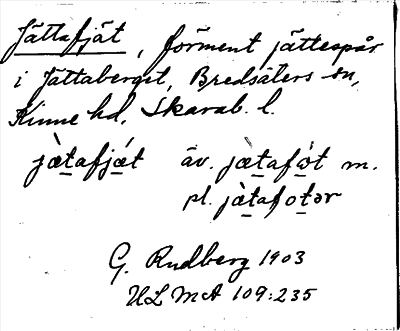 Jättafjät, förment jättespår
i Jättaberget, Bredsäters sn,
Kinne hd, Skarab. l.
jæ̀tafjǽ̣t äv. jæ̀tafòt m.
pl. jæ̀tafotər
G. Rudberg 1903
ULMA 109:235